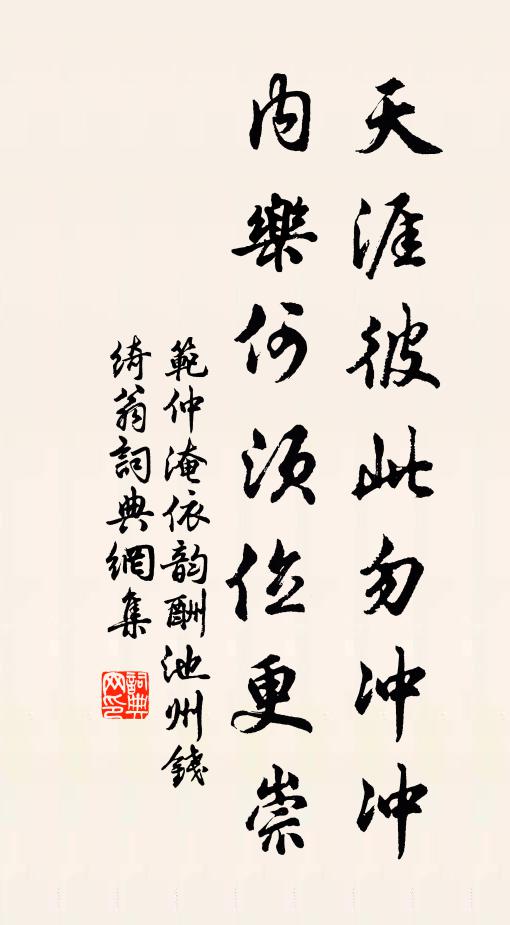 天涯彼此勿冲冲
内樂何须位更崇
範仲淹依韵酬池州錢
绮翁詞典網集
詞典网印